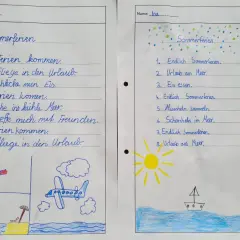 merferien
ien kommen.
liege in den Urlaub.
ein Eis.
ien kommen.
ins kühle Meer.
mich mit Freunden.
ien kommen.
liege in den Urlaub.
Name:
Sommerferien
1. Endlich Sommerferien.
2. Urlaub am Meer.
3. Eis essen.
4. Endlich Sommerferien.
5. Muscheln sammeln.
6. Schwimmen im Meer.
7. Endlich Sommerferien.
8. Urlaub am Meer.